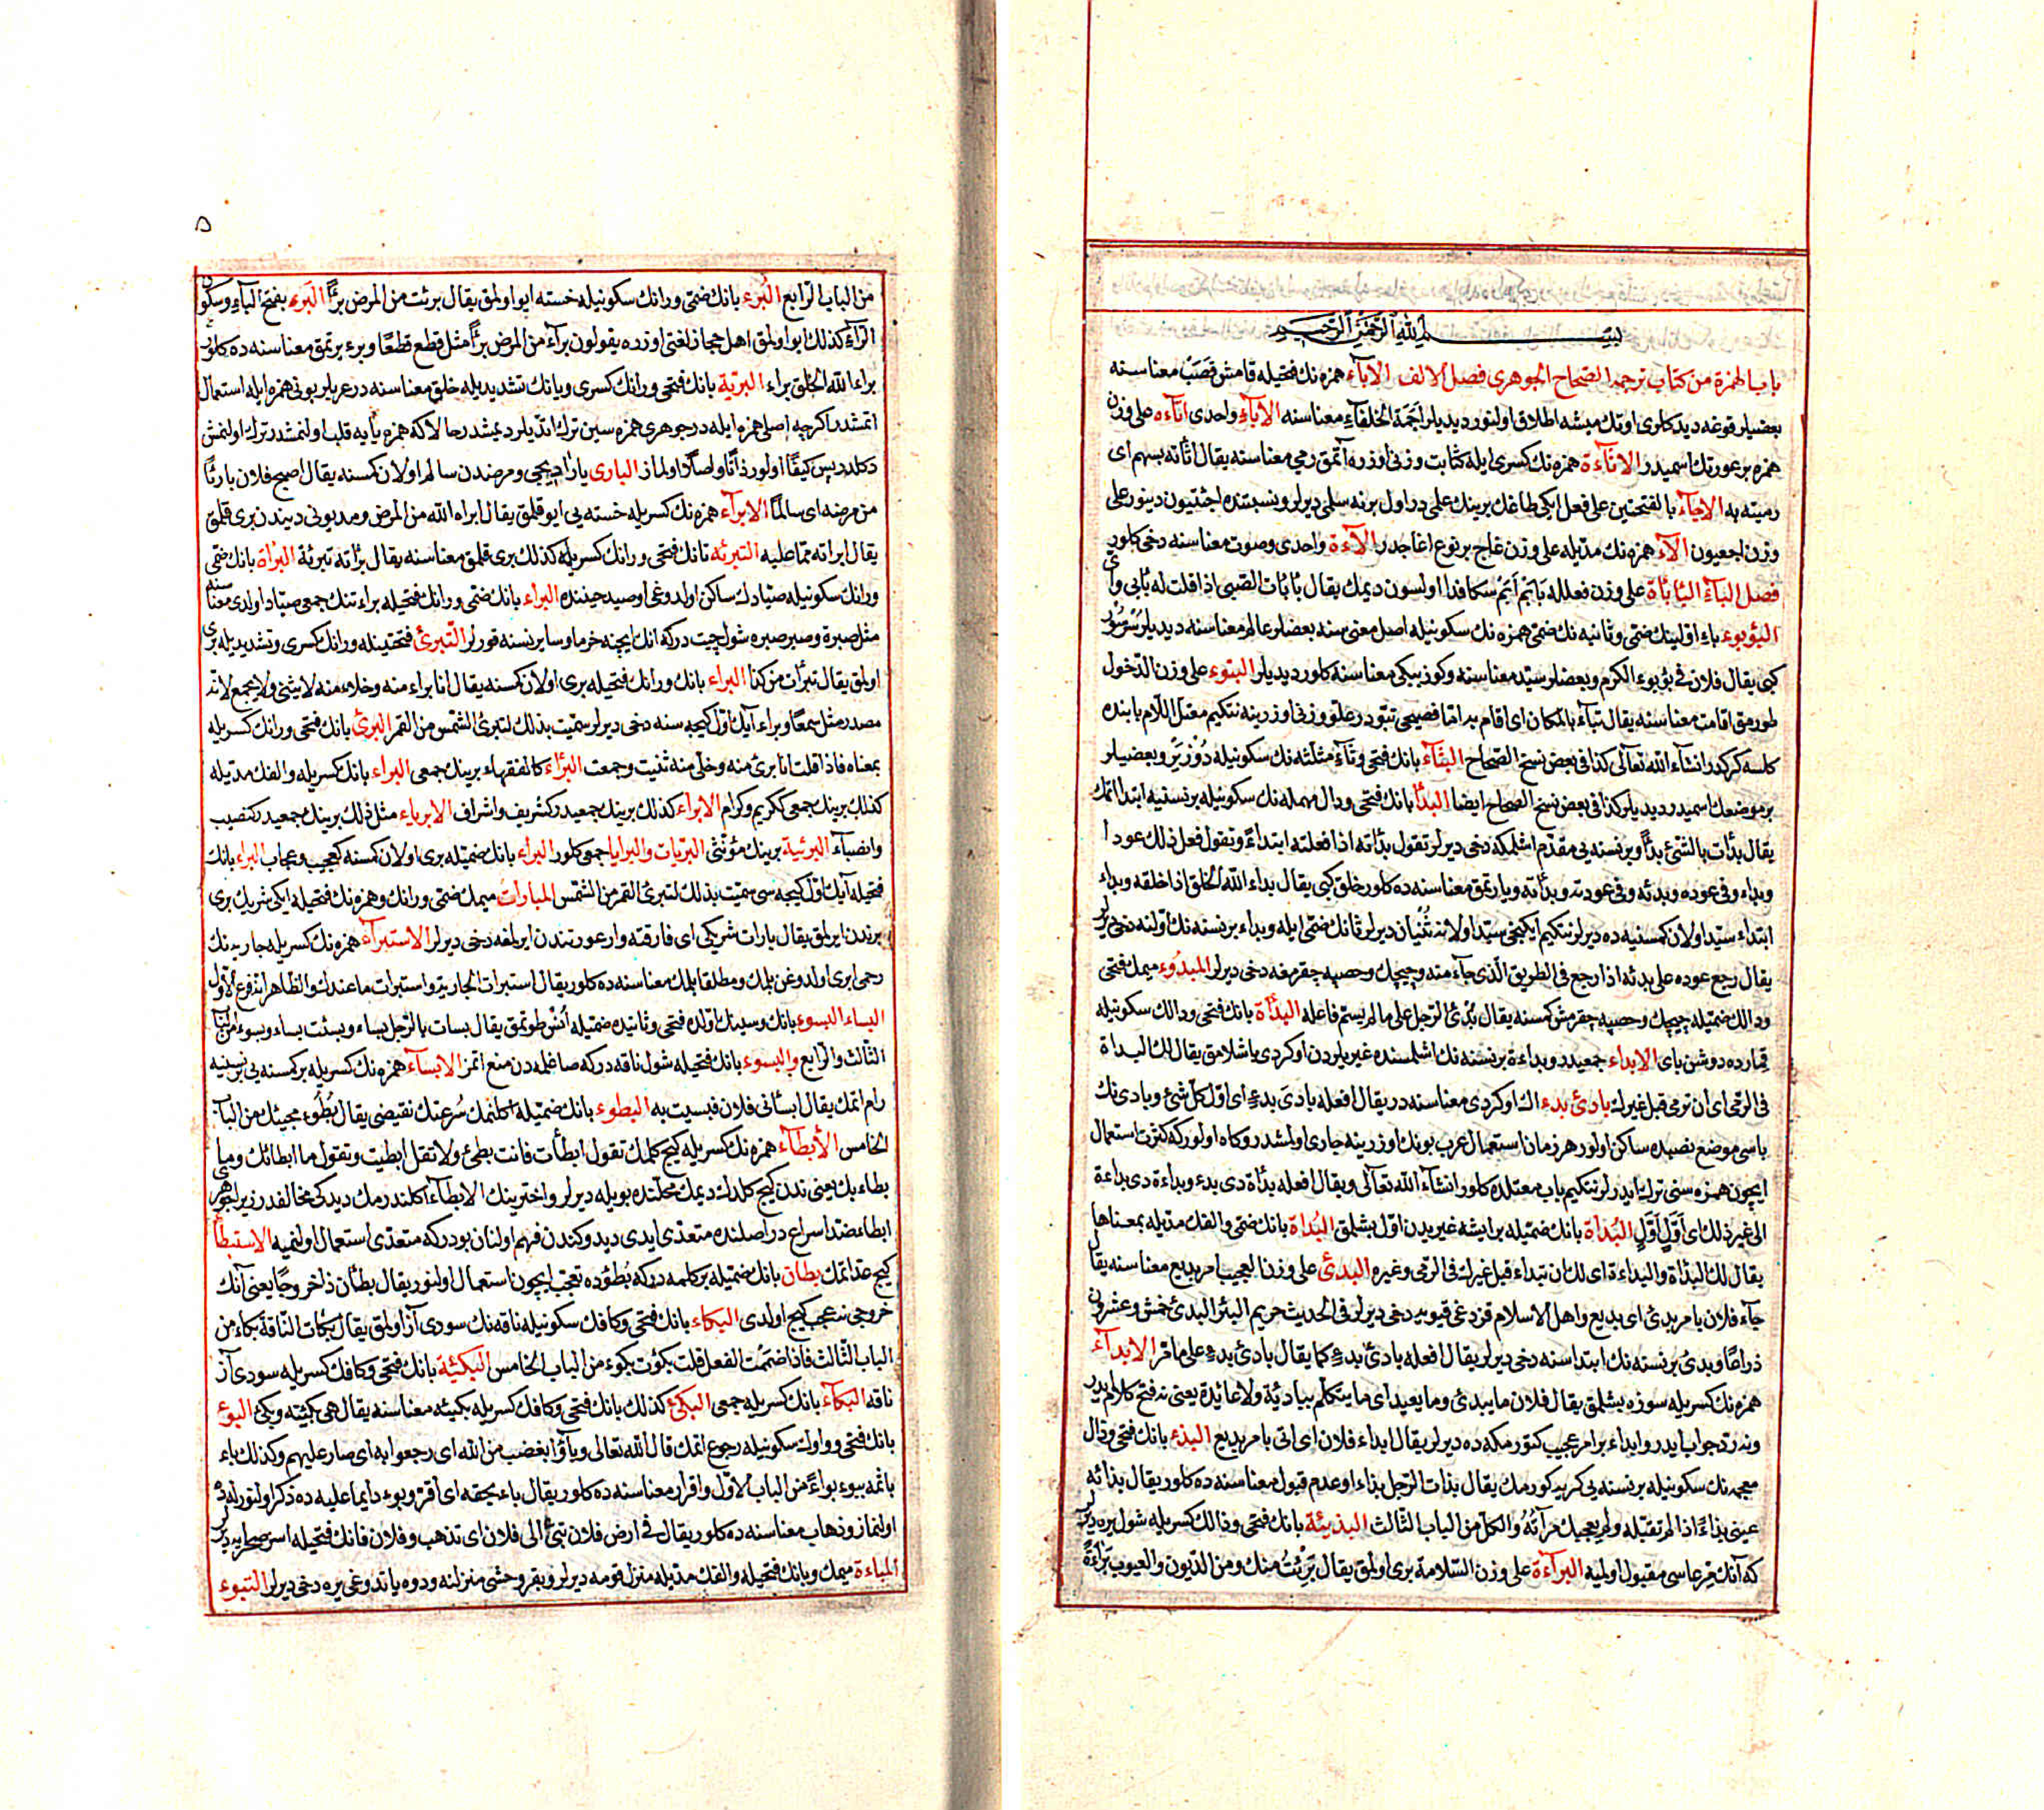 بسم الله الرحمن الرحيم
باب الهمزة من كتاب ترجمه الصحاح الجوهرى فصل الالف الاباء همزه نك فتحيله قامش قصب معناسنه
بعضيلر قوغه ديد كلرى اوتك ميشه اطلاق اولنور ديديلر اجمة الخلفاء معناسنه الاباء واحدى اتاءه على وزن
همزه بر عورتك اسميدر الاثاءة همزه نك كسرى ايله كثابت وزنى اوزره آتمق رمى معناسنه يقال اثأته بسهم اى
رميته به الاجاء بالفتحتين على فعل ايكى طاغك برينك علمى در اول برنه سلمى ديرلر ونسبتنده اجئيون دينور على
وزن اجعيون الآء همزه نك مديله على وزن عاج بر نوع اغاجدر الآءة واحدى وصوت معناسنه دخى كلور
فصل الباء البأبأة على وزن فعلله بابم اتم سكا فدا اولسون ديمك يقال بأبأت الصبى اذا قلت له بأبى وامى
البؤبوء باء اولينك ضمى وثانيه نك ضمى همزه نك سكونيله اصل معنىسنه بعضلر عالم معناسنه ديديلر سرسور
كبى يقال فلان فى بؤبوء الكرم وبعضلر سيد معناسنه وكوز ببكى معناسنه كلور ديديلر البتوء على وزن الدخول
طورمق اقامت معناسنه يقال تباء بالمكان اى اقام به اما فصيحى تبتو در علو وزنى اوزرينه نتكيم معتل اللام بابنده
كلسه كركدر انشاء الله تعالى كذا فى بعض نسخ الصحاح البثاء بانك فتحى وثاء مثلثه نك سكونيله دوزير وبعضيلر
بر موضعك اسميدر ديديلر كذا فى بعض نسخ الصحاح ايضا البدأ بانك فتحى ودال مهمله نك سكونيله بر نسنيه ابتدا اتمك
يقال بدأت بالشئ بدأ وبر نسنه يى مقدم اشلمكه دخى ديرلر تقول بدأته اذا فعلته ابتداء وتقول فعل ذلك عودا
وبداء وفى عوده وبدئه وفى عودته وبدأته وياراتمق معناسنه ده كلور خلق كبى يقال بداء الله الخلق اذا خلقه وبداء
ابتداء سيد اولان كمسنيه ده ديرلر نتكيم ايكنجى سيد اولانه ثنيان ديرلر ثانك ضمى ايله وبداء بر نسنه نك اولنه دخى ديرلر
يقال رجع عوده على بدئه اذا رجع فى الطريق الذى جاء منه وچيچك وحصبه چقرمغه دخى ديرلر المبدوء ميمك فتحى
ودالك ضميله چيچك وحصبه چقرمش كمسنه يقال بدئ الرجل على ما لم يسم فاعله البدأة بانك فتحى ودالك سكونيله
قمارده دوشن پاى الابداء جمعيدر وبداءة بر نسنه نك اشلمسنده غيريلردن اوكردى باشلامق يقال لك البداة
فى الرمى اى ان ترمى قبل غيرك بادئ بدء اك اوكردى معناسنه در يقال افعله بادئ بدء اى اول كل شئ وبادى نك
ياسى موضع نصبده ساكن اولور هر زمان استعمال عرب بونك اوزرينه جارى اولمشدر وكاه اولور كه كثرت استعمال
ايچون همزه سنى ترك ايدرلر نتكيم باب معتلده كلور انشاء الله تعالى ويقال افعله بدأة ذى بدء وبداءة ذى بداءة
الى غير ذلك اى اول اول البدأة بانك ضميله بر ايشه غيريدن اول بشلمق البداة بانك ضمى والفك مديله بمعناها
يقال لك البدأة والبداءة اى لك ان تبداء قبل غيرك فى الرمى وغيره البدئ على وزن العجيب امر بديع معناسنه يقال
جاء فلان بامر بدئ اى بديع واهل الاسلام قزدغى قيويه دخى ديرلر فى الحديث حريم البئر البدئ خمس وعشرون
ذراعا وبدئ بر نسنه نك ابتداسنه دخى ديرلر يقال افعله بادئ بدء كما يقال بادئ بدء على ما مر الابداء
همزه نك كسريله سوزه بشلمق يقال فلان ما يبدئ وما يعيد اى ما يتكلم ببادئة ولا عائدة يعنى نه فتح كلام ايدر
ونه رد جواب ايدر وابداء بر امر عجيب كتورمكه ده ديرلر يقال ابداء فلان اى اتى بامر بديع البذء بانك فتحى وذال
معجمه نك سكونيله بر نسنه يى كريه كورمك يقال بذات الرجل بذاء او عدم قبول معناسنه ده كلور يقال بذاته
عينى بذاءً اذا لم تقبله ولم يعجبك مرآته والكل من الباب الثالث البذيئة بانك فتحى وذالك كسريله شول يره ديرلر
كه آنك مرعاسى مقبول اولميه البراءة على وزن السلامة برى اولمق يقال برئت منك ومن الديون والعيوب براءة
٥
من الباب الرابع البرء بانك ضمى ورانك سكونيله خسته ايو اولمق يقال برئت من المرض برأ البرء بفتح الباء وسكون
الراء كذلك ايو اولمق اهل حجاز لغتى اوزره يقولون براء من المرض برأ مثل قطع قطعا وبرء يرتمق معناسنه ده كلور
براء الله الخلق براء البرية بانك فتحى ورانك كسرى ويانك تشديديله خلق معناسنه در عربلر بونى همزه ايله استعمال
اتمشدر اكرچه اصلى همزه ايله در جوهرى همزه سين ترك اتديلر ديمشدر حالا كه همزه يأ يه قلب اولنمشدر ترك اولنمش
دكلدر پس كيفا اولور ذاتا واصلا اولماز البارى يارادجى ومرضدن سالم اولان كمسنه يقال اصبح فلان بارئا
من مرضه اى سالما الابراء همزه نك كسريله خسته يى ايو قلمق يقال ابراه الله من المرض ومديونى ديندن برى قلمق
يقال ابراته مما عليه التبرئه تانك فتحى ورانك كسريله كذلك برى قلمق معناسنه يقال برأته تبرئة البرأة بانك ضمى
ورانك سكونيله صيادك ساكن اولدوغى اوصيد حيننده البراء بانك ضمى ورانك فتحيله براءتنك جمعى صياد اولدى معناسنه
مثل صبرة وصبر صبره شول چيت دركه انك ايچنه خرما وساير نسنه قورلر التبرئ فتحتينله ورانك كسرى وتشديديله برى
اولمق يقال تبرأت من كذا البراء بانك ورانك فتحيله برى اولان كمسنه يقال انا براء منه وخلاء منه لا يثنى ولا يجمع لانه
مصدر مثل سمعا وبراء آيك اول كيجه سنه دخى ديرلر سميت بذلك لتبرئ الشمس من القمر البرئ بانك فتحى ورانك كسريله
بمعناه فاذا قلت انا برئ منه وخلى منه ثنيت وجمعت البرآء كالفقهاء برينك جمعى البراء بانك كسريله والفك مديله
كذلك برينك جمعى ككريم وكرام الابراء كذلك برينك جمعيدر كشريف واشراف الابرياء مثل ذلك برينك جمعيدر كنصيب
وانصباء البرئية برينك مؤنثى البريات والبرايا جمعى كلور البراء بانك ضميله برى اولان كمسنه كعجيب وعجاب البراء بانك
فتحيله آيك اول كيجه سى سميت بذلك لتبرئ القمر من الشمس المبارات ميمك ضمى ورانك وهمزه نك فتحيله ايكى شريك برى
برندن ايرلمق يقال بارات شريكى اى فارقته وار عورتندن ايرلمغه دخى ديرلر الاستبراء همزه نك كسريله جاريه نك
رحمى ابرى اولدوغن بلمك ومطلقا بلمك معناسنه ده كلور يقال استبرات الجارية واستبرات ما عندك والظاهر انه فرع الاول
البساء البسوء بانك وسينك اولده فتحى وثانيده ضميله انس طوتمق يقال بسات بالرجل بساء وبسئت بساء وبسوء من الباب
الثالث والرابع والبسوء بانك فتحيله شول ناقه دركه صاغلمه دن منع اتمز الابساء همزه نك كسريله بر كمسنه يى بر نسنيه
رام اتمك يقال ابسأنى فلان فبسيت به البطوء بانك ضميله اكلنمك سرعتك نقيضى يقال بطؤ مجيئك من الباب
الخامس الابطاء همزه نك كسريله كيج كلمك تقول ابطأت فانت بطئ ولا تقل ابطيت وتقول ما ابطائك وما
بطاء بك يعنى ندن كيج كلدك ديمك محلنده بويله ديرلر واخترينك الابطاء اكلندرمك ديدكى مخالفدر زيرا جوهرى
ابطاء ضد اسراع در اصلنده متعدى ايدى ديدوكندن فهم اولنان بودر كه متعدى استعمال اولنميه الاستبطأ
كيج عد اتمك بطان بانك ضميله بر كلمه در كه بطؤده تعجب ايچون استعمال اولنور يقال بطأن ذا خروجا يعنى آنك
خروجى نه عجب كيج اولدى البكاء بانك فتحى وكافك سكونيله ناقه نك سودى آز اولمق يقال بكأت الناقة بكاء من
الباب الثالث فاذا ضممت الفعل قلت بكؤت بكوء من الباب الخامس البكيئة بانك فتحى وكافك كسريله سودى آز
ناقه البكاء بانك كسريله جمعى البكئ كذلك بانك فتحى وكافك كسريله بكيئه معناسنه يقال هى بكيئه وبكئ البوء
بانك فتحى وواوك سكونيله رجوع اتمك قال الله تعالى وباؤا بغضب من الله اى رجعوا به اى صار عليهم وكذلك باء
باثمه يبوء بواءً من الباب الاول واقرار معناسنه ده كلور يقال باء بحقه اى اقر وبوء دايما عليه ده ذكر اولنور لهده
اولنماز وذهاب معناسنه ده كلور يقال فى ارض فلان تبئ الى فلان اى تذهب وفلان فانك فتحيله اسر صحرايه ديرلر
المباءة ميمك وبانك فتحيله والفك مديله منزل قومه ديرلر وبقر وحشى منزلنه ودوه ياتدوغى يره دخى ديرلر التبوء